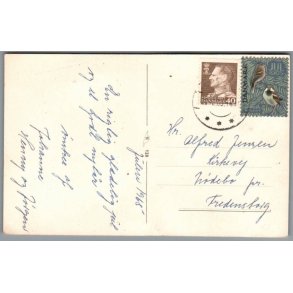 Julen 1965
En rigtig glædelig jul
og et godt nytår
ønskes af
Johanne
Henny og Jörgen
Hr. Alfred Jensen
Kirkevej
Nödebo pr.
Fredensborg
DANMARK
40